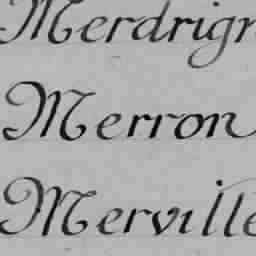 Merdrign
Merron
Merville